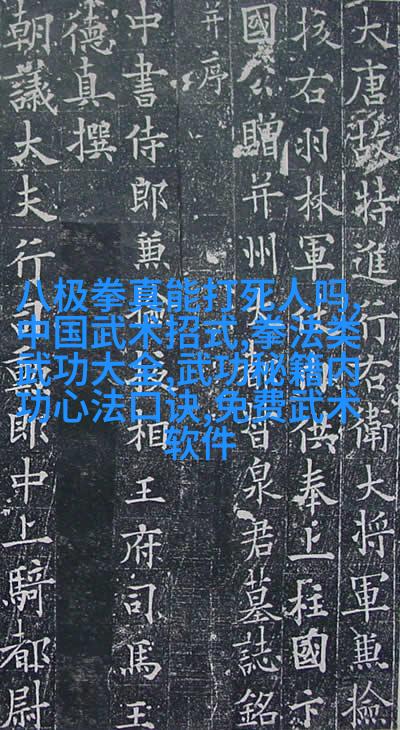 大唐故特進行右衛大將軍兼檢
校右羽林軍供奉上柱國卞
國公贈并州大都督泉君墓誌銘
并序
中書侍郎兼檢校相王府司馬王
德真撰
朝議大夫行司勳郎中上騎都尉
八极拳真能打死人吗,
中国武术招式,拳法类
武功大全,武功秘籍内
功心法口诀,免费武术
软件